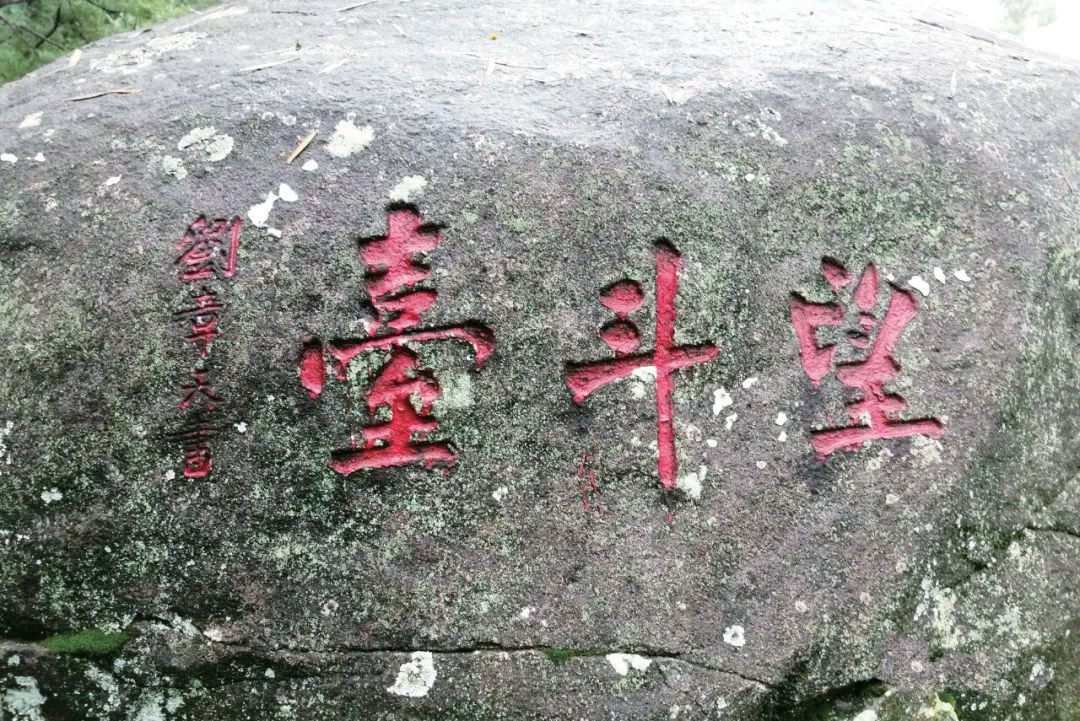 望斗臺
劉章天書